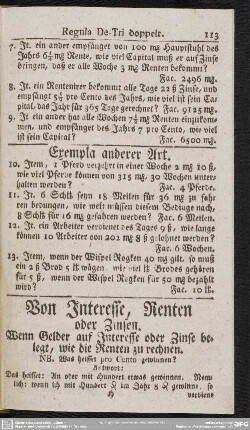 Regula De-Tri doppelt. 113
7. It. ein ander empfänget von 100 mg Hauptstuhl des
Jahrs 6½ mg Rente, wie viel Capital muß er auf Zinse
bringen, daß er alle Woche 3 mg Renten bekommt?
Fac. 2496 mg.
8. It. ein Rentenirer bekommt alle Tage 22 ß Zinß, und
empfängt 5½ pro Cento des Jahrs, wie viel ist sein Ca-
pital, das Jahr für 365 Tage gerechnet? Fac. 9125 mg.
9. It. ein ander hat alle Wochen 7½ mg Renten einzukom-
men, und empfänget des Jahrs 7 pro Cento, wie viel
ist sein Capital? Fac. 6500 mg.
Exempla anderer Art.
10. Item, 1 Pferd verzehrt in einer Woche 2 mg 10 ß,
wie viel Pferde können von 315 mg. 30 Wochen unter-
halten werden? Fac. 4 Pferde.
11. It. 6 Schlß seyn 18 Meilen für 36 mg zu fah-
ren bedungen, wie weit müssen diesem Bedinge nach,
8 Schlß für 16 mg gefahren werden? Fac. 6 Meilen.
12. It. ein Arbeiter verdienet des Tages 9 ß, wie lange
können 10 Arbeiter von 202 mg 8 ß gelohnet werden?
Fac. 6 Wochen.
13. Item, wenn der Wispel Rogken 40 mg gilt, so muß
ein 2 ß Brod 5 lb wägen, wie viel lb Brodes gehören
für 5 ß, wenn der Wispel Rogken für 50 mg bezahlt
wird? Fac. 10 lb.
Von Interesse, Renten
oder Zinsen.
Wenn Gelder auf Interesse oder Zinse be-
legt, wie die Renten zu rechnen.
NB. Was heisset pro Cento gewinnen?
Antwort:
Das heisset: An oder mit Hundert etwas gewinnen. Nem-
lich: wenn ich mit Hundert im Jahr 8 gewinne, so
H verdiene